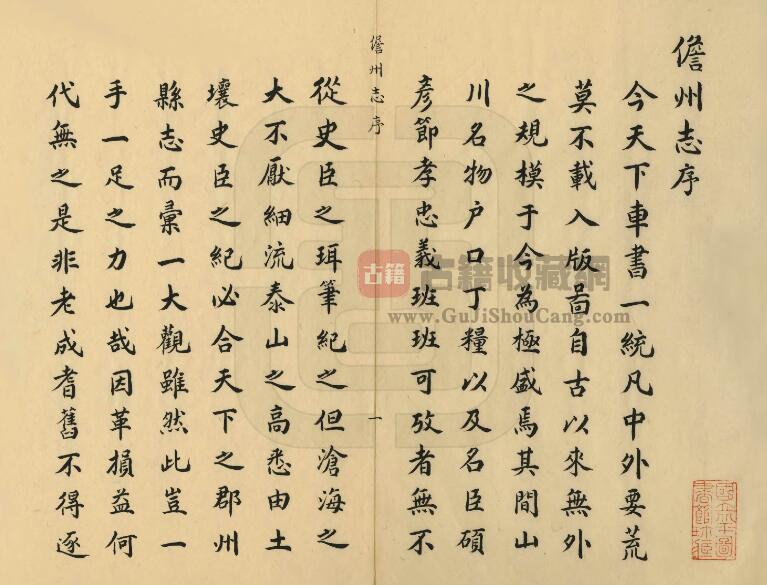 儋州志序
今天下車書一統凡中外要荒
莫不載入版啚自古以來無外
之規模于今為極盛焉其間山
川名物户口丁糧以及名臣碩
彥節孝忠義班班可攷者無不
儋州志序
一
從史臣之珥筆紀之但滄海之
大不厭細流泰山之高悉由土
壤史臣之紀必合天下之郡州
縣志而彙一大觀雖然此豈一
手一足之力也哉因革損益何
代無之是非老成耆舊不得逐
古籍
古籍收藏網
www.GuJiShouCang.com